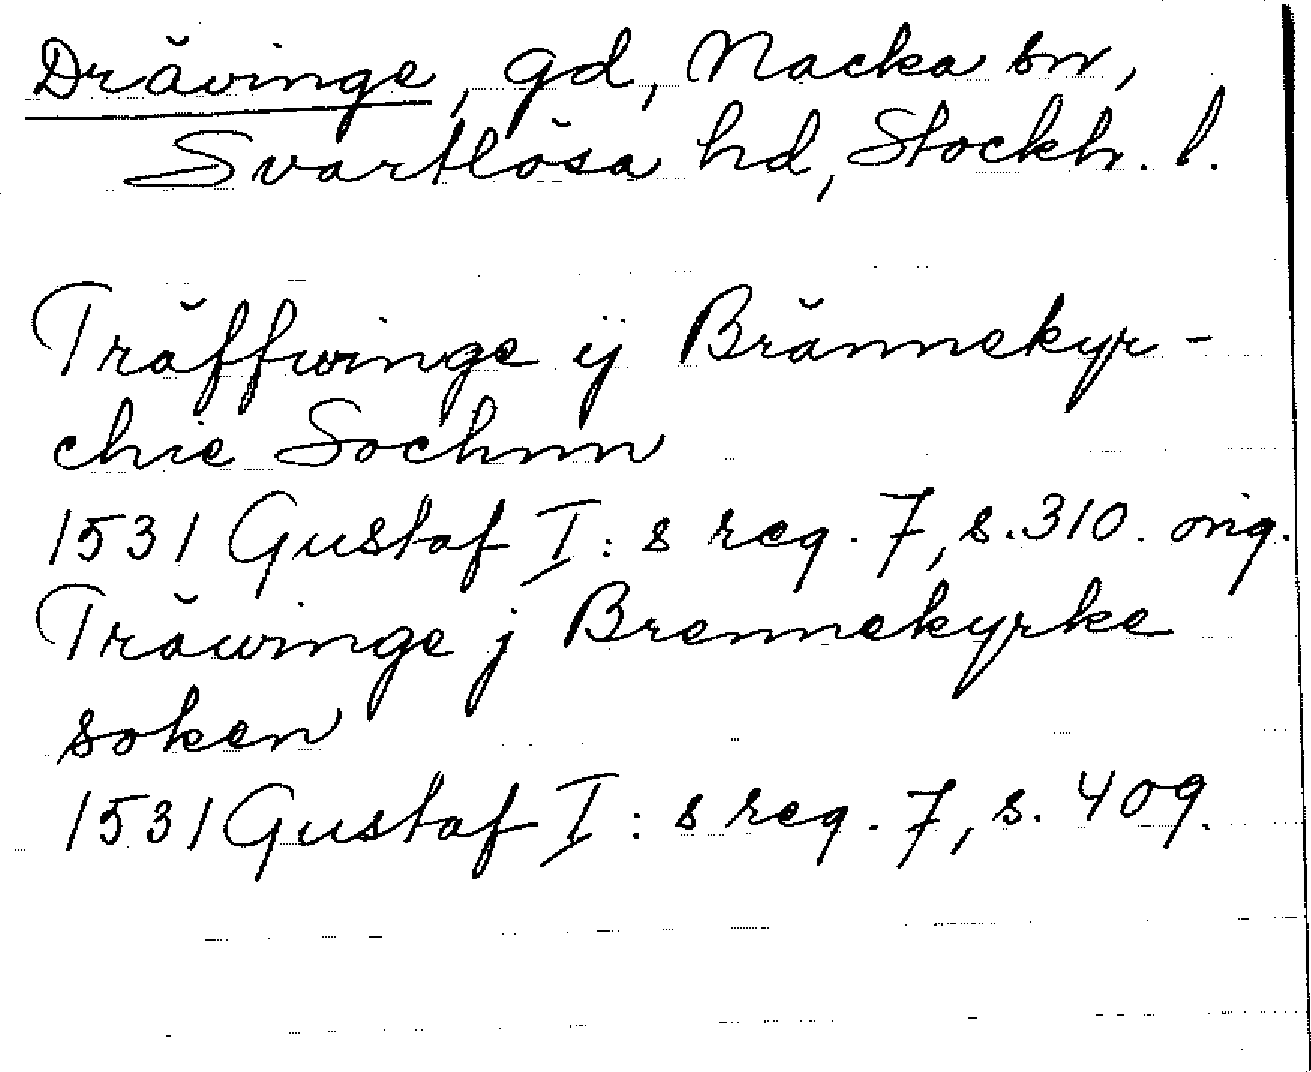 Drävinge, gd, Nacka sn,
Svartlösa hd, Stockh. l.
Träffwinge ij Brännekyr-
chie Sochnn
1531 Gustaf I:s reg. 7, s. 310. orig.
Träwinge j Brennekyrke
soken
1531 Gustaf I:s reg. 7, s. 409.